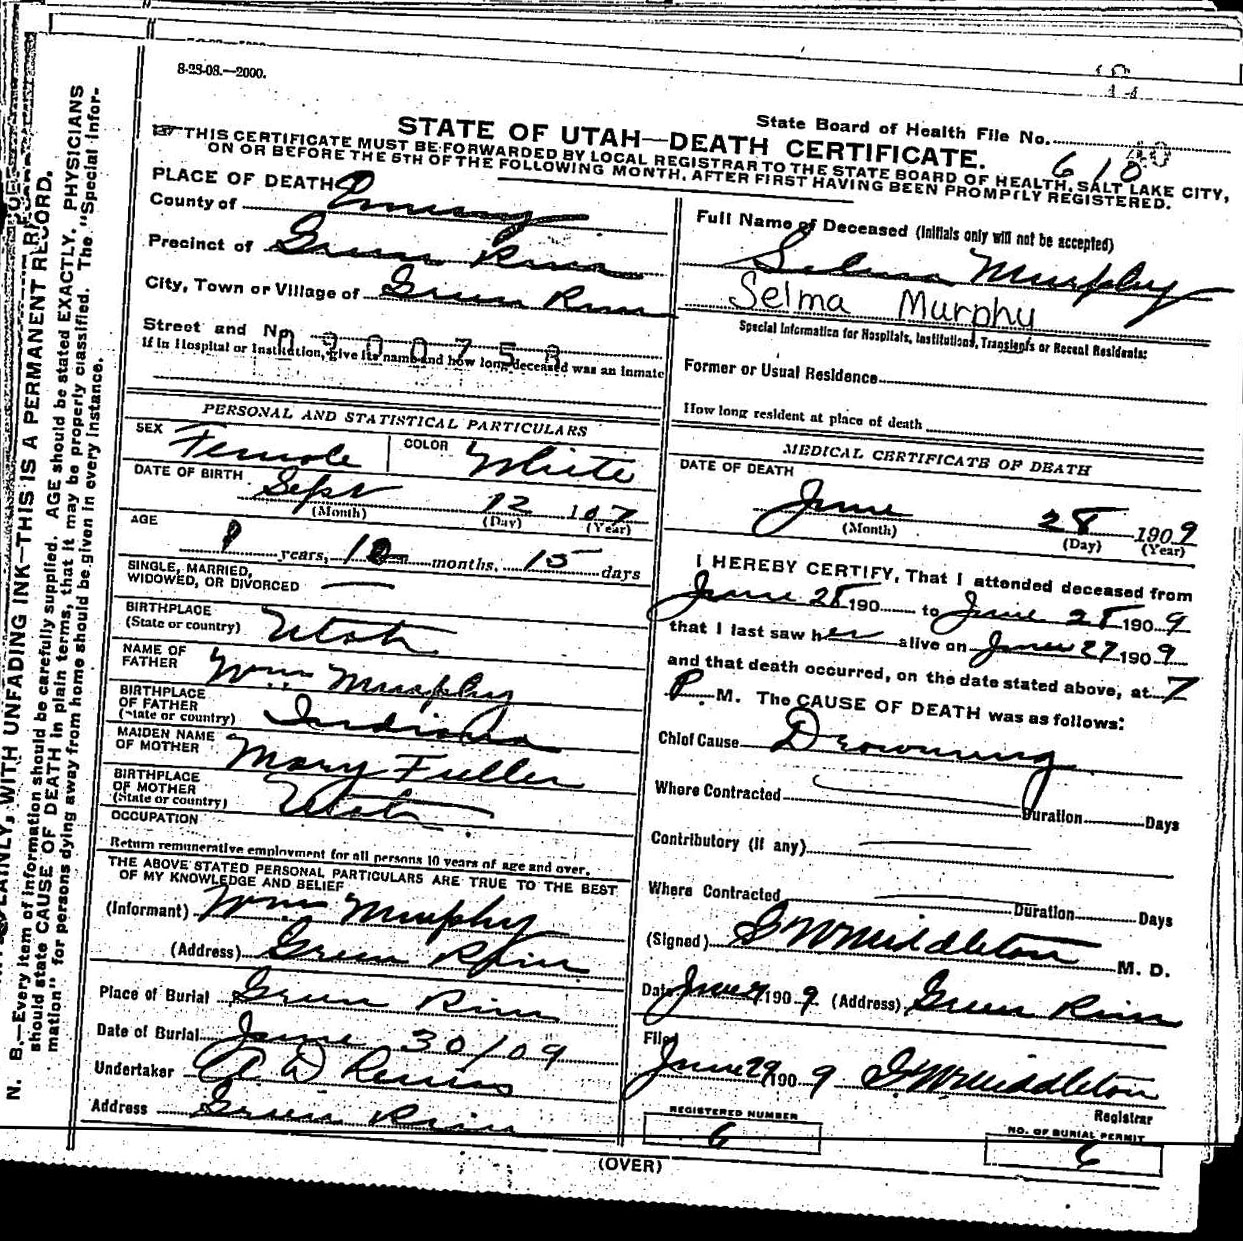 8-28-08.—2000.
State Board of Health File No. 40
STATE OF UTAH—DEATH CERTIFICATE. 610
THIS CERTIFICATE MUST BE FORWARDED BY LOCAL REGISTRAR TO THE STATE BOARD OF HEALTH, SALT LAKE CITY,
ON OR BEFORE THE 5TH OF THE FOLLOWING MONTH, AFTER FIRST HAVING BEEN PROMPTLY REGISTERED.
PLACE OF DEATH
County of Emery
Precinct of Green River
City, Town or Village of Green River
Street and No. 0900758
If in Hospital or Institution, give its name and how long deceased was an inmate
PERSONAL AND STATISTICAL PARTICULARS
SEX Female COLOR White
DATE OF BIRTH Sept 12 1907
(Month) (Day) (Year)
AGE
1 years, 10 months, 15 days
SINGLE, MARRIED,
WIDOWED, OR DIVORCED
BIRTHPLACE
(State or country) Utah
NAME OF
FATHER Wm Murphy
BIRTHPLACE
OF FATHER
(State or country) Indiana
MAIDEN NAME
OF MOTHER Mary Fuller
BIRTHPLACE
OF MOTHER
(State or country) Utah
OCCUPATION
Return remunerative employment for all persons 10 years of age and over.
THE ABOVE STATED PERSONAL PARTICULARS ARE TRUE TO THE BEST
OF MY KNOWLEDGE AND BELIEF
(Informant) Wm Murphy
(Address) Green River
Place of Burial Green River
Date of Burial June 30/09
Undertaker
Address Green River
Full Name of Deceased (Initials only will not be accepted)
Selma Murphy
Selma Murphy
Special Information for Hospitals, Institutions, Transients or Recent Residents:
Former or Usual Residence
How long resident at place of death
MEDICAL CERTIFICATE OF DEATH
DATE OF DEATH
June 28 1909
(Month) (Day) (Year)
I HEREBY CERTIFY, That I attended deceased from
June 28 190 to June 28 1909
that I last saw her alive on June 27 1909
and that death occurred, on the date stated above, at 7
P. M. The CAUSE OF DEATH was as follows:
Chief Cause Drowning
Where Contracted Duration Days
Contributory (if any)
Where Contracted Duration Days
(Signed) G W Middleton M. D.
Date June 1909 (Address) Green River
Filed
June 29 1909 G W Middleton
Registrar
REGISTERED NUMBER
6
NO. OF BURIAL PERMIT
6
(OVER)
WITH UNFADING INK—THIS IS A PERMANENT RECORD.
N. B.—Every item of information should be carefully supplied. AGE should be stated EXACTLY. PHYSICIANS
should state CAUSE OF DEATH in plain terms, that it may be properly classified. The "Special Infor-
mation" for persons dying away from home should be given in every instance.